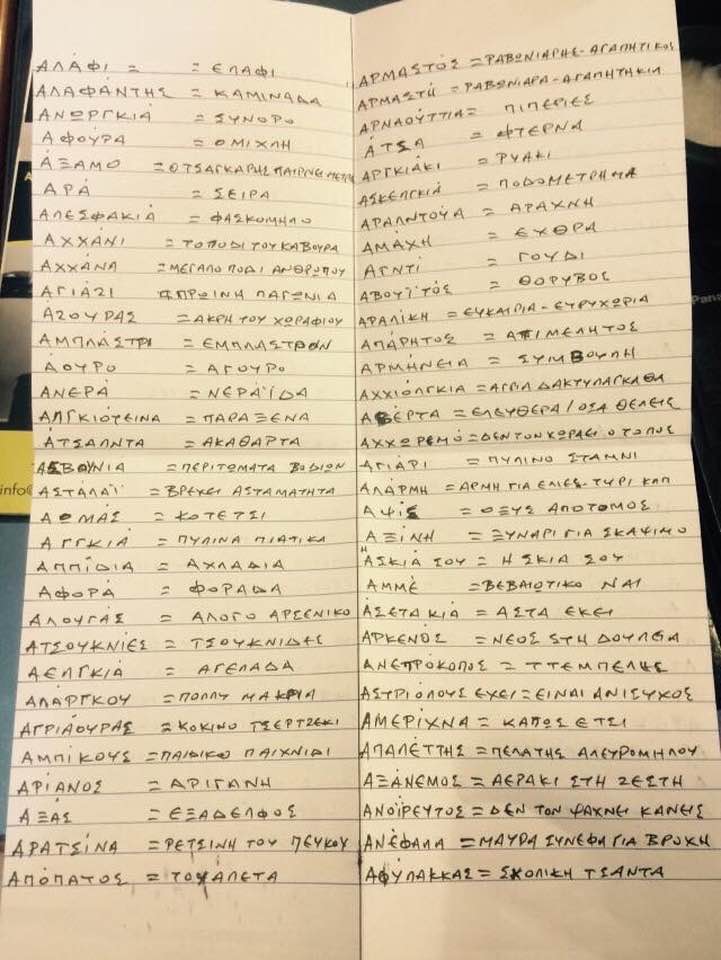 ΑΛΑΦΙ = = ΕΛΑΦΙ
ΑΛΑΦΑΝΤΗΣ = ΚΑΜΙΝΑΔΑ
ΑΝΩΡΓΚΙΆ = ΣΥΝΟΡΟ
ΑΦΟΎΡΑ = ΟΜΙΧΛΗ
ΆΞΑΜΟ = ΟΤΣΑΓΚΑΡΗΣ ΠΑΙΡΝΕΙ ΜΕΤΡΑ
ΑΡΆ = ΣΕΙΡΑ
ΑΛΕΣΦΑΚΙΆ = ΦΑΣΚΟΜΗΛΟ
ΑΧΧΆΝΙ = ΤΟ ΠΟΔΙ ΤΟΥ ΚΑΒΟΥΡΑ
ΑΧΧΆΝΑ = ΜΕΓΑΛΟ ΠΟΔΙ ΑΝΘΡΩΠΟΥ
ΑΓΙΆΖΙ = ΠΡΩΙΝΗ ΠΑΓΩΝΙΑ
ΑΖΟΥΡΑΣ = ΑΚΡΗ ΤΟΥ ΧΩΡΑΦΙΟΥ
ΑΜΠΛΆΣΤΡΙ = ΕΜΠΛΑΣΤΡΟΝ
ΆΟΥΡΟ = ΑΓΟΥΡΟ
ΑΝΕΡΆ = ΝΕΡΑΪΔΑ
ΑΛΓΚΙΌΤΕΙΝΑ = ΠΑΡΑΞΕΝΑ
ΆΤΣΑΛΝΤΑ = ΑΚΑΘΑΡΤΑ
ΑΣΒΟΥΝΙΑ = ΠΕΡΙΤΩΜΑΤΑ ΒΟΔΙΩΝ
ΑΣΤΆΛΑΪ = ΒΡΕΧΕΙ ΑΣΤΑΜΑΤΗΤΑ
ΑΟΜΆΣ = ΚΟΤΕΤΣΙ
ΑΓΓΚΙΆ = ΠΥΛΙΝΑ ΠΙΑΤΙΚΑ
ΑΠΠΊΔΙΑ = ΑΧΛΑΔΙΑ
ΑΦΟΡΆ = ΦΟΡΑΔΑ
ΑΛΟΥΓΆΣ = ΑΛΟΓΟ ΑΡΣΕΝΙΚΟ
ΑΤΣΟΥΚΝΙΈΣ = ΤΣΟΥΚΝΙΔΕΣ
ΑΕΛΓΚΙΆ = ΑΓΕΛΑΔΑ
ΑΛΆΡΓΚΟΥ = ΠΟΛΛΥ ΜΑΚΡΙΑ
ΑΓΡΙΆΟΥΡΑΣ = ΚΟΚΙΝΟ ΤΣΕΡΤΖΕΚΙ
ΑΜΠΙΚΟΥΣ = ΠΑΙΔΙΚΟ ΠΑΙΧΝΙΔΙ
ΑΡΙΑΝΟΣ = ΑΡΙΓΑΝΗ
ΑΞΆΣ = ΕΞΑΔΕΛΦΟΣ
ΑΡΑΤΣΙΝΑ = ΡΕΤΣΙΝΗ ΤΟΥ ΠΕΥΚΟΥ
ΑΠΌΠΑΤΟΣ = ΤΟΥΑΛΕΤΑ
ΑΡΜΑΣΤΌΣ = ΡΑΒΩΝΙΑΡΗΣ - ΑΓΑΠΗΤΙΚΟΣ
ΑΡΜΑΣΤΉ = ΡΑΒΩΝΙΑΡΑ - ΑΓΑΠΗΤΗΚΙΑ
ΑΡΝΑΟΎΤΤΙΑ = ΠΙΠΕΡΙΕΣ
ΆΤΣΑ = ΦΤΕΡΝΑ
ΑΡΓΚΙΆΚΙ = ΡΥΑΚΙ
ΑΣΚΕΛΓΚΙΆ = ΠΟΔΟΜΕΤΡΗΜΑ
ΑΡΑΛΝΤΟΎΑ = ΑΡΑΧΝΗ
ΑΜΆΧΗ = ΕΧΘΡΑ
ΑΓΝΤΊ = ΓΟΥΔΙ
ΑΒΟΥΪΤΌΣ = ΘΟΡΥΒΟΣ
ΑΡΑΛΊΚΗ = ΕΥΚΑΙΡΙΑ - ΕΥΡΥΧΩΡΙΑ
ΑΠΆΡΗΤΟΣ = ΑΠΙΜΕΛΗΤΟΣ
ΑΡΜΉΝΕΙΑ = ΣΥΜΒΟΥΛΗ
ΑΧΧΙΌΛΓΚΙΑ = ΑΓΡΙΑ ΔΑΚΤΥΛΑΓΚΑΘΑ
ΑΒΕΡΤΑ = ΕΛΕΥΘΕΡΑ / ΟΣΑ ΘΕΛΕΙΣ
ΑΧΧΩΡΕΜΌ = ΔΕΝ ΤΟΝ ΧΩΡΑΕΙ Ο ΤΟΠΟΣ
ΑΓΙΆΡΙ = ΠΥΛΙΝΟ ΣΤΑΜΝΙ
ΑΛΆΡΜΗ = ΑΡΜΗ ΓΙΑ ΕΛΙΕΣ - ΤΥΡΙ ΚΛΠ
ΑΨΙΣ = ΟΞΥΣ ΑΠΟΤΟΜΟΣ
ΑΞΊΝΗ = ΞΥΝΑΡΙ ΓΙΑ ΣΚΑΨΙΜΟ
Η ΆΣΚΙΆ ΣΟΥ = Η ΣΚΙΑ ΣΟΥ
ΑΜΜΈ = ΒΕΒΑΙΩΤΙΚΟ ΝΑΙ
ΑΣΕΤΑ ΚΙΆ = ΑΣΤΑ ΕΚΕΙ
ΑΡΚΕΝΌΣ = ΝΕΟΣ ΣΤΗ ΔΟΥΛΕΙΑ
ΑΝΕΠΡΌΚΟΠΟΣ = ΤΤΕΜΠΕΛΗΣ
ΑΣΤΡΙΌΛΟΥΣ ΕΧΕΙ = ΕΙΝΑΙ ΑΝΙΣΥΧΟΣ
ΑΜΕΡΊΧΝΑ = ΚΑΠΩΣ ΕΤΣΙ
ΑΠΑΛΈΤΤΗΣ = ΠΕΛΑΤΗΣ ΑΛΕΥΡΟΜΗΛΟΥ
ΑΞΆΝΕΜΟΣ = ΑΕΡΑΚΙ ΣΤΗ ΖΕΣΤΗ
ΑΝΟΪΡΕΥΤΟΣ = ΔΕΝ ΤΟΝ ΨΑΧΝΕΙ ΚΑΝΕΙΣ
ΑΝΈΦΑΛΑ = ΜΑΥΡΑ ΣΥΝΕΦΑ ΓΙΑ ΒΡΟΧΗ
ΑΦΎΛΑΚΚΑΣ = ΣΧΟΛΙΚΗ ΤΣΑΝΤΑ
info@
Pana